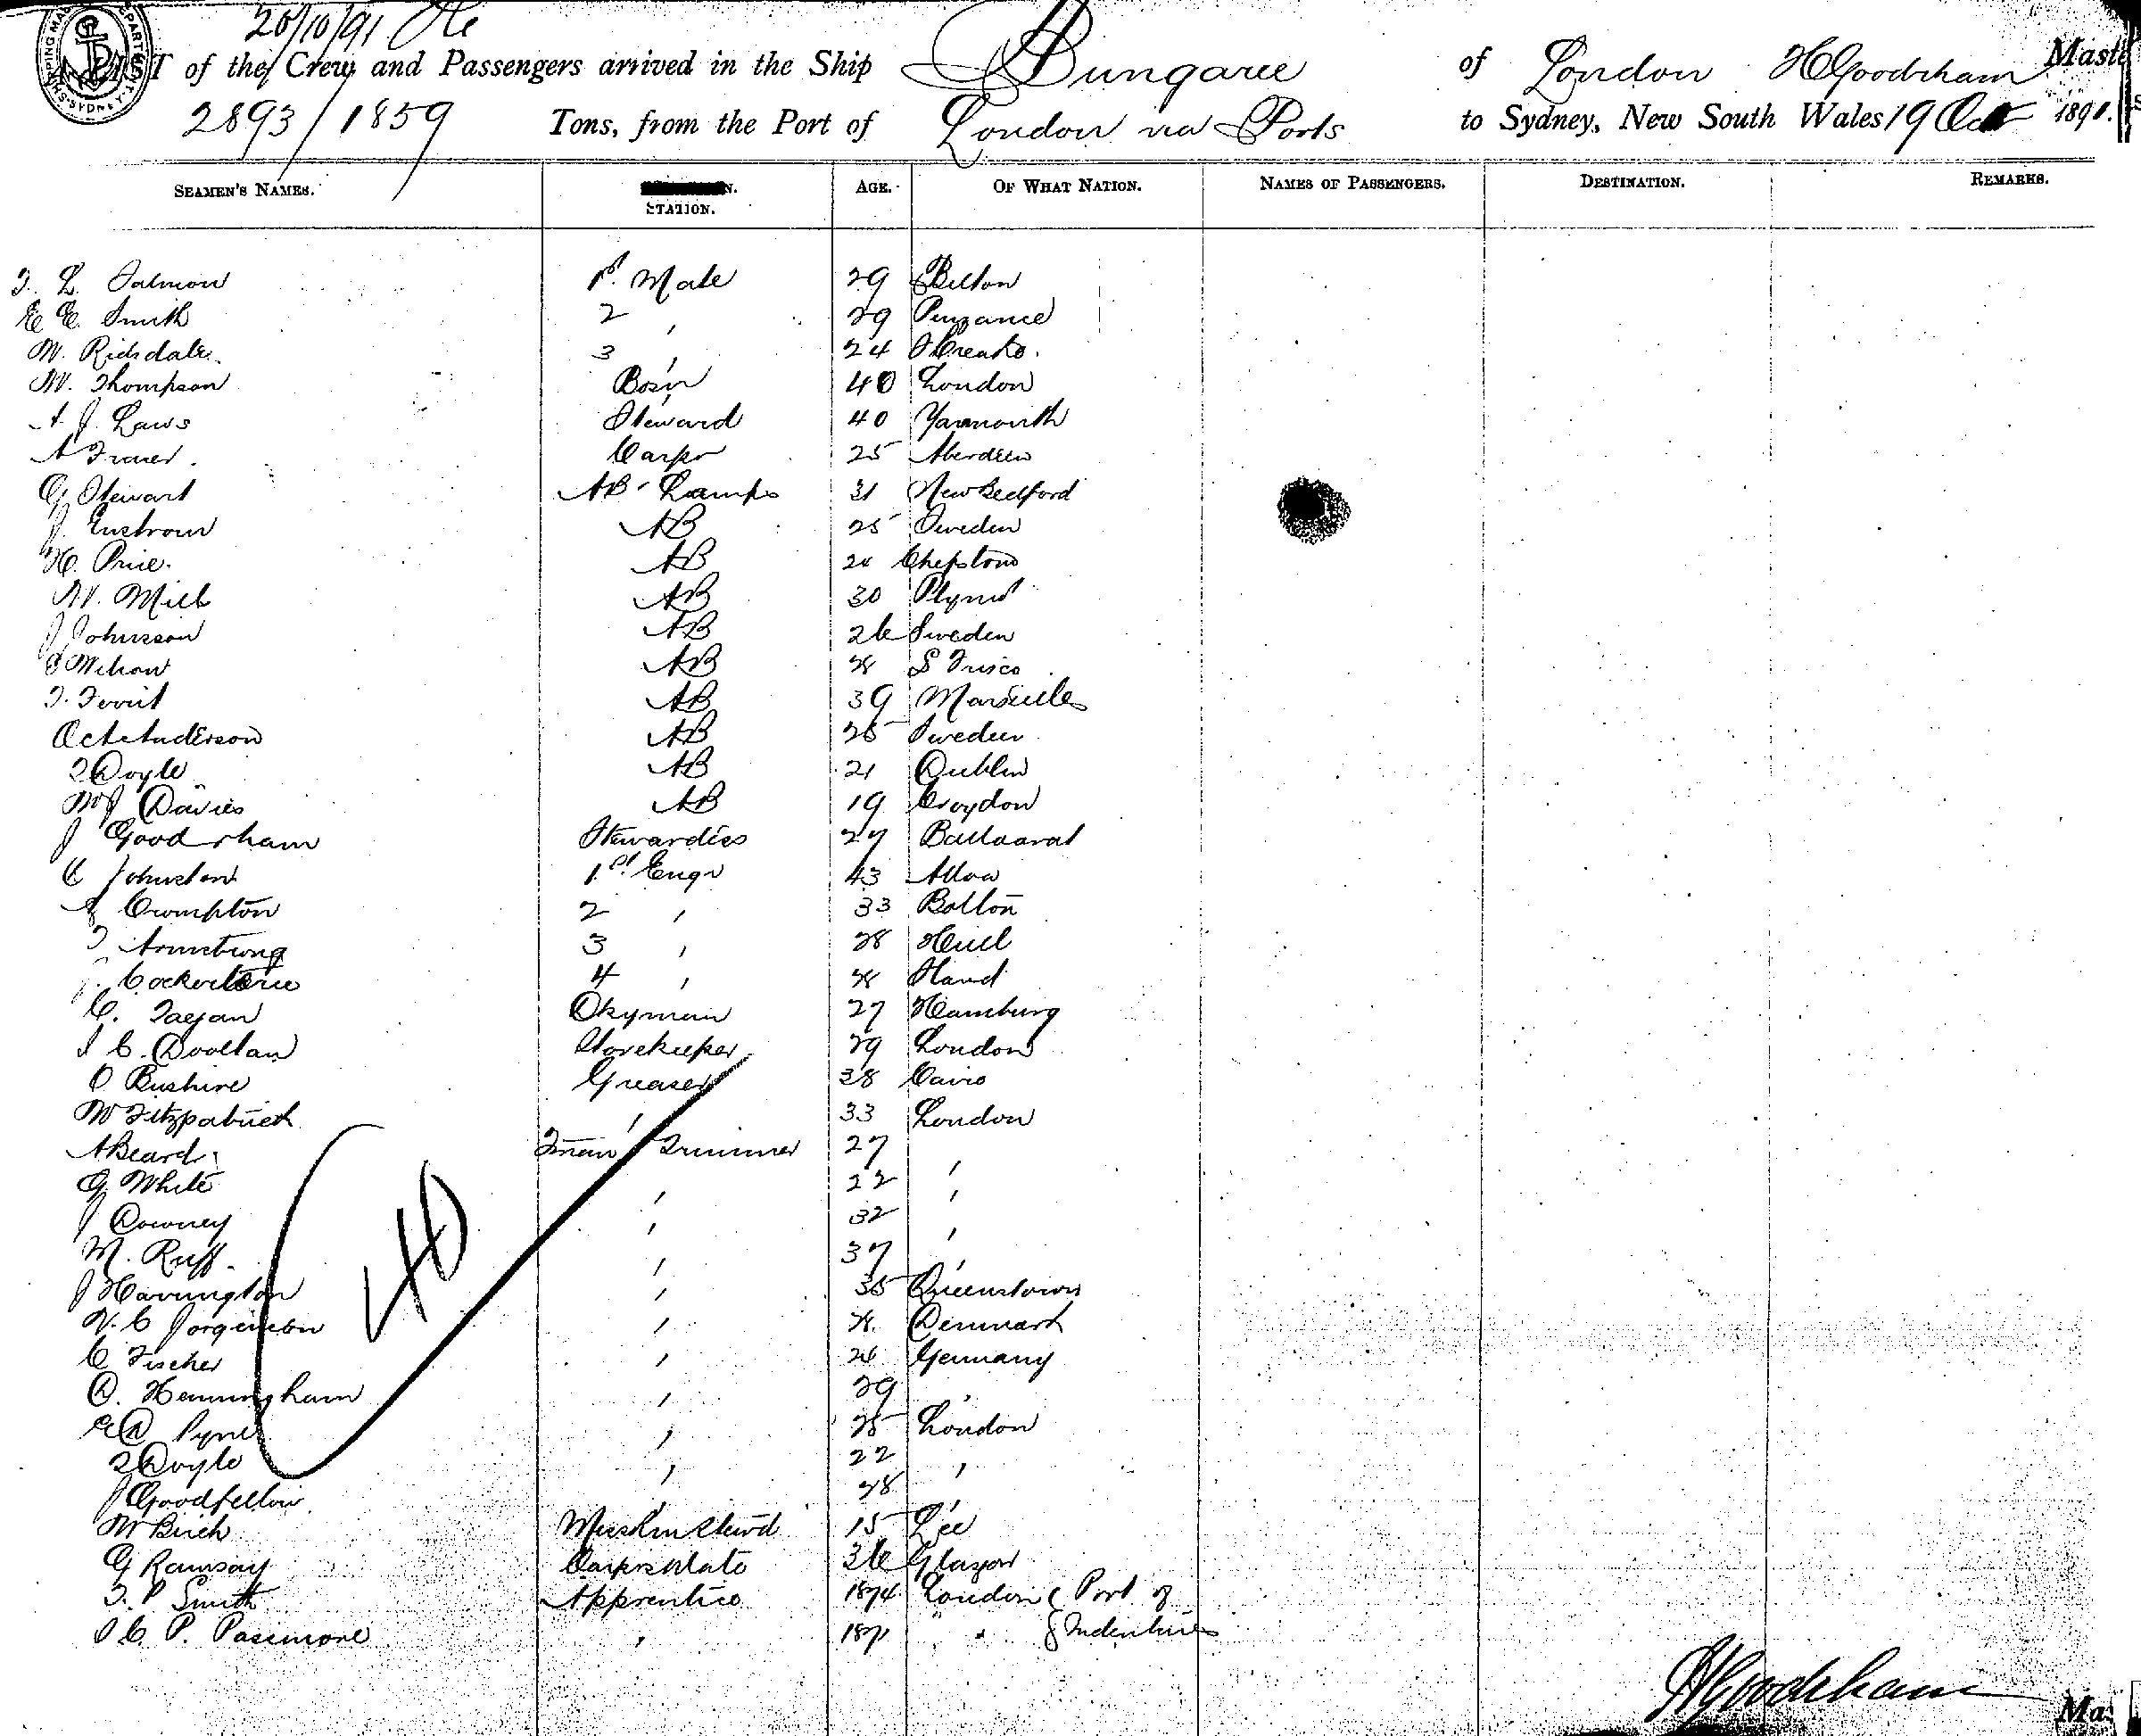 20/10/91
LIST of the Crew and Passengers arrived in the Ship Bungaree of London H Goodrham Maste
2893/1859 Tons, from the Port of London via Ports to Sydney, New South Wales 19 Oct 1891.
SEAMEN'S NAMES. STATION. AGE. OF WHAT NATION. NAMES OF PASSENGERS. DESTINATION. REMARKS.
Salmon 1st Mate 29 Belton
E E. Smith 2 , 29 Penzance
M. Ridsdale 3 , 24
W. Thompson Bosn 40 London
A. J. Laws Steward 40 Yarmouth
A Carpr 25 Aberdeen
G Stewart AB Lamps 31 New Bedford
J. Enstrom AB 25 Sweden
H. Price. AB Chepstow
W. Mill AB 30 Plymo
J Johnson AB 26 Sweden
Wilson AB 28 S Frisco
AB 39 Marseilles
Anderson AB 25 Sweden
T Doyle AB 21 Dublin
W J Davies AB 19 Croydon
J Goodrham Stewardess 27 Ballaarat
C Johnston 1st Engr 43 Alloa
Crompton 2 , 33 Bolton
T Armstrong 3 , 28 Hull
4 , 28
C. Dkyman 27 Hamburg
J C. Doollan Storekeeper 29 London
O Bushire Greaser 38 Cairo
W Fitzpatrick , 33 London
A Beard Fman & Trimmer 27 ,
G White , 22 ,
J Downey , 32 ,
M. Ruff , 37 ,
J Harrington , 35 Queenstown
N. C Jorgensen , 28. Denmark
C Fischer , 26 Germany
D. Henningham , 29 ,
E D Pyne , 25 London
T Doyle , 22 ,
J Goodfellow , 28 ,
W Birch Messrm Stewd 15 Lee
G Ramsay Carprs Mate 36 Glasgow
T. P Smith Apprentice 1874 London ( Port of
C. P. Passmore , 1871 " " { Indentures
40
H Goodrham
Mas